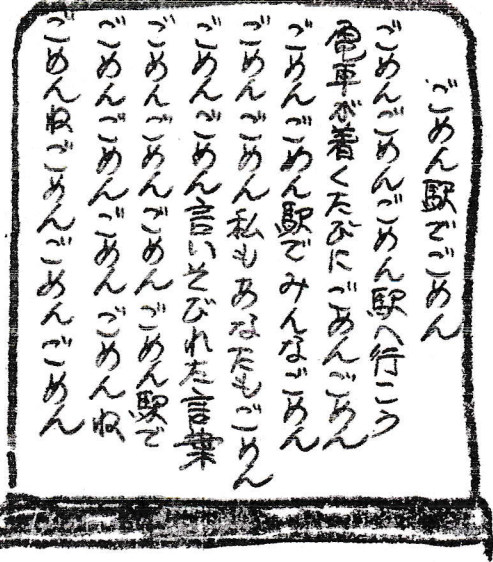 ごめん駅でごめん
ごめんごめんごめん駅へ行こう
電車が着くたびにごめんごめん
ごめんごめん駅でみんなごめん
ごめんごめん私もあなたもごめん
ごめんごめん言いそびれた言葉
ごめんごめんごめんごめん駅で
ごめんごめんごめんごめんね
ごめんねごめんごめんごめん